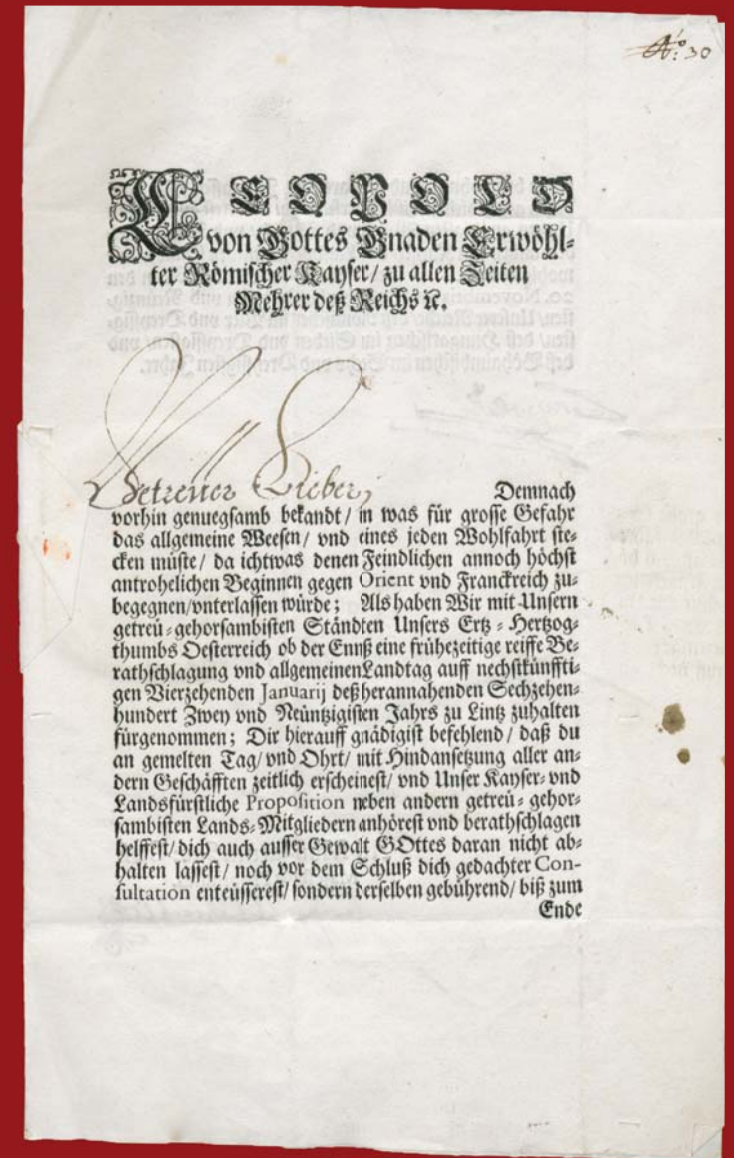 No: 30
LEOPOLD
von Gottes Gnaden Erwöhl-
ter Römischer Kayser/ zu allen Zeiten
Mehrer deß Reichs ꝛc.
Getreuer Lieber,
Demnach
vorhin genuegsamb bekandt/ in was für grosse Gefahr
das allgemeine Weesen/ vnd eines jeden Wohlfahrt ste-
cken müste/ da ichtwas denen Feindlichen annoch höchst
antrohelichen Beginnen gegen Orient vnd Franckreich zu-
begegnen/vnterlassen würde; Als haben Wir mit Unsern
getreü-gehorsambisten Ständten Unsers Ertz-Hertzog-
thumbs Oesterreich ob der Ennß eine frühezeitige reiffe Be-
rathschlagung vnd allgemeinen Landtag auff nechstkünffti-
gen Vierzehenden Januarij deß herannahenden Sechzehen-
hundert Zwey vnd Neüntzigisten Jahrs zu Lintz zuhalten
fürgenommen; Dir hierauff gnädigist befehlend/ daß du
an gemelten Tag/ vnd Ohrt/ mit Hindansetzung aller an-
dern Geschäfften zeitlich erscheinest/ vnd Unser Kayser- vnd
Landsfürstliche Proposition neben andern getreü-gehor-
sambisten Lands-Mitgliedern anhörest vnd berathschlagen
helffest/ dich auch ausser Gewalt GOttes daran nicht ab-
halten lassest/ noch vor dem Schluß dich gedachter Con-
sultation enteüsserest/ sondern derselben gebührend/ biß zum
Ende